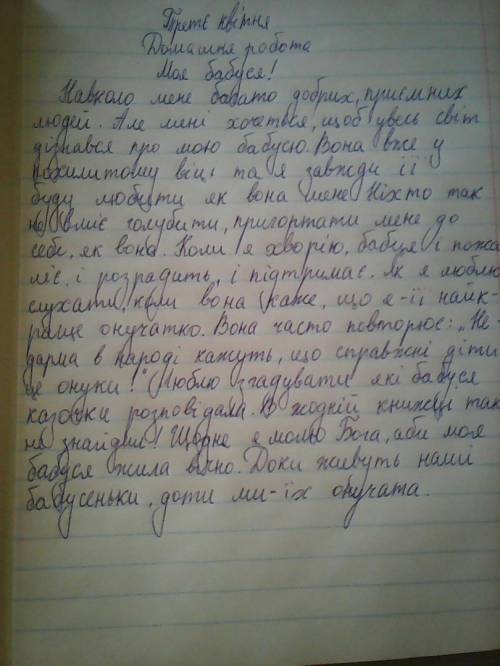 Третє квітня
Домашня робота
Моя бабуся!
Навколо мене багато добрих, приємних
людей. Але мині хочеться, щоб увесь світ
дізнався про мою бабусю. Вона вже у
похилитому віці та я завжди її
буду любити як вона мене Ніхто так
не вміє голубити, пригортати мене до
себе, як вона. Коли я хворію, бабця і пожа
ліє, і розрадить, і підтримає. Як я люблю
слухати, коли вона каже, що я-її найк-
раще онучатко. Вона часто повторює: „Не-
дарма в народі кажуть, що справжні діти
це онуки!" Люблю згадувати які бабуся
казочки розповідала. В жодній книжці так
не знайдеш! Щодне я молю Бога, аби моя
бабуся жила вічно. Доки живуть наші
бабусеньки, доти ми-їх онучата.